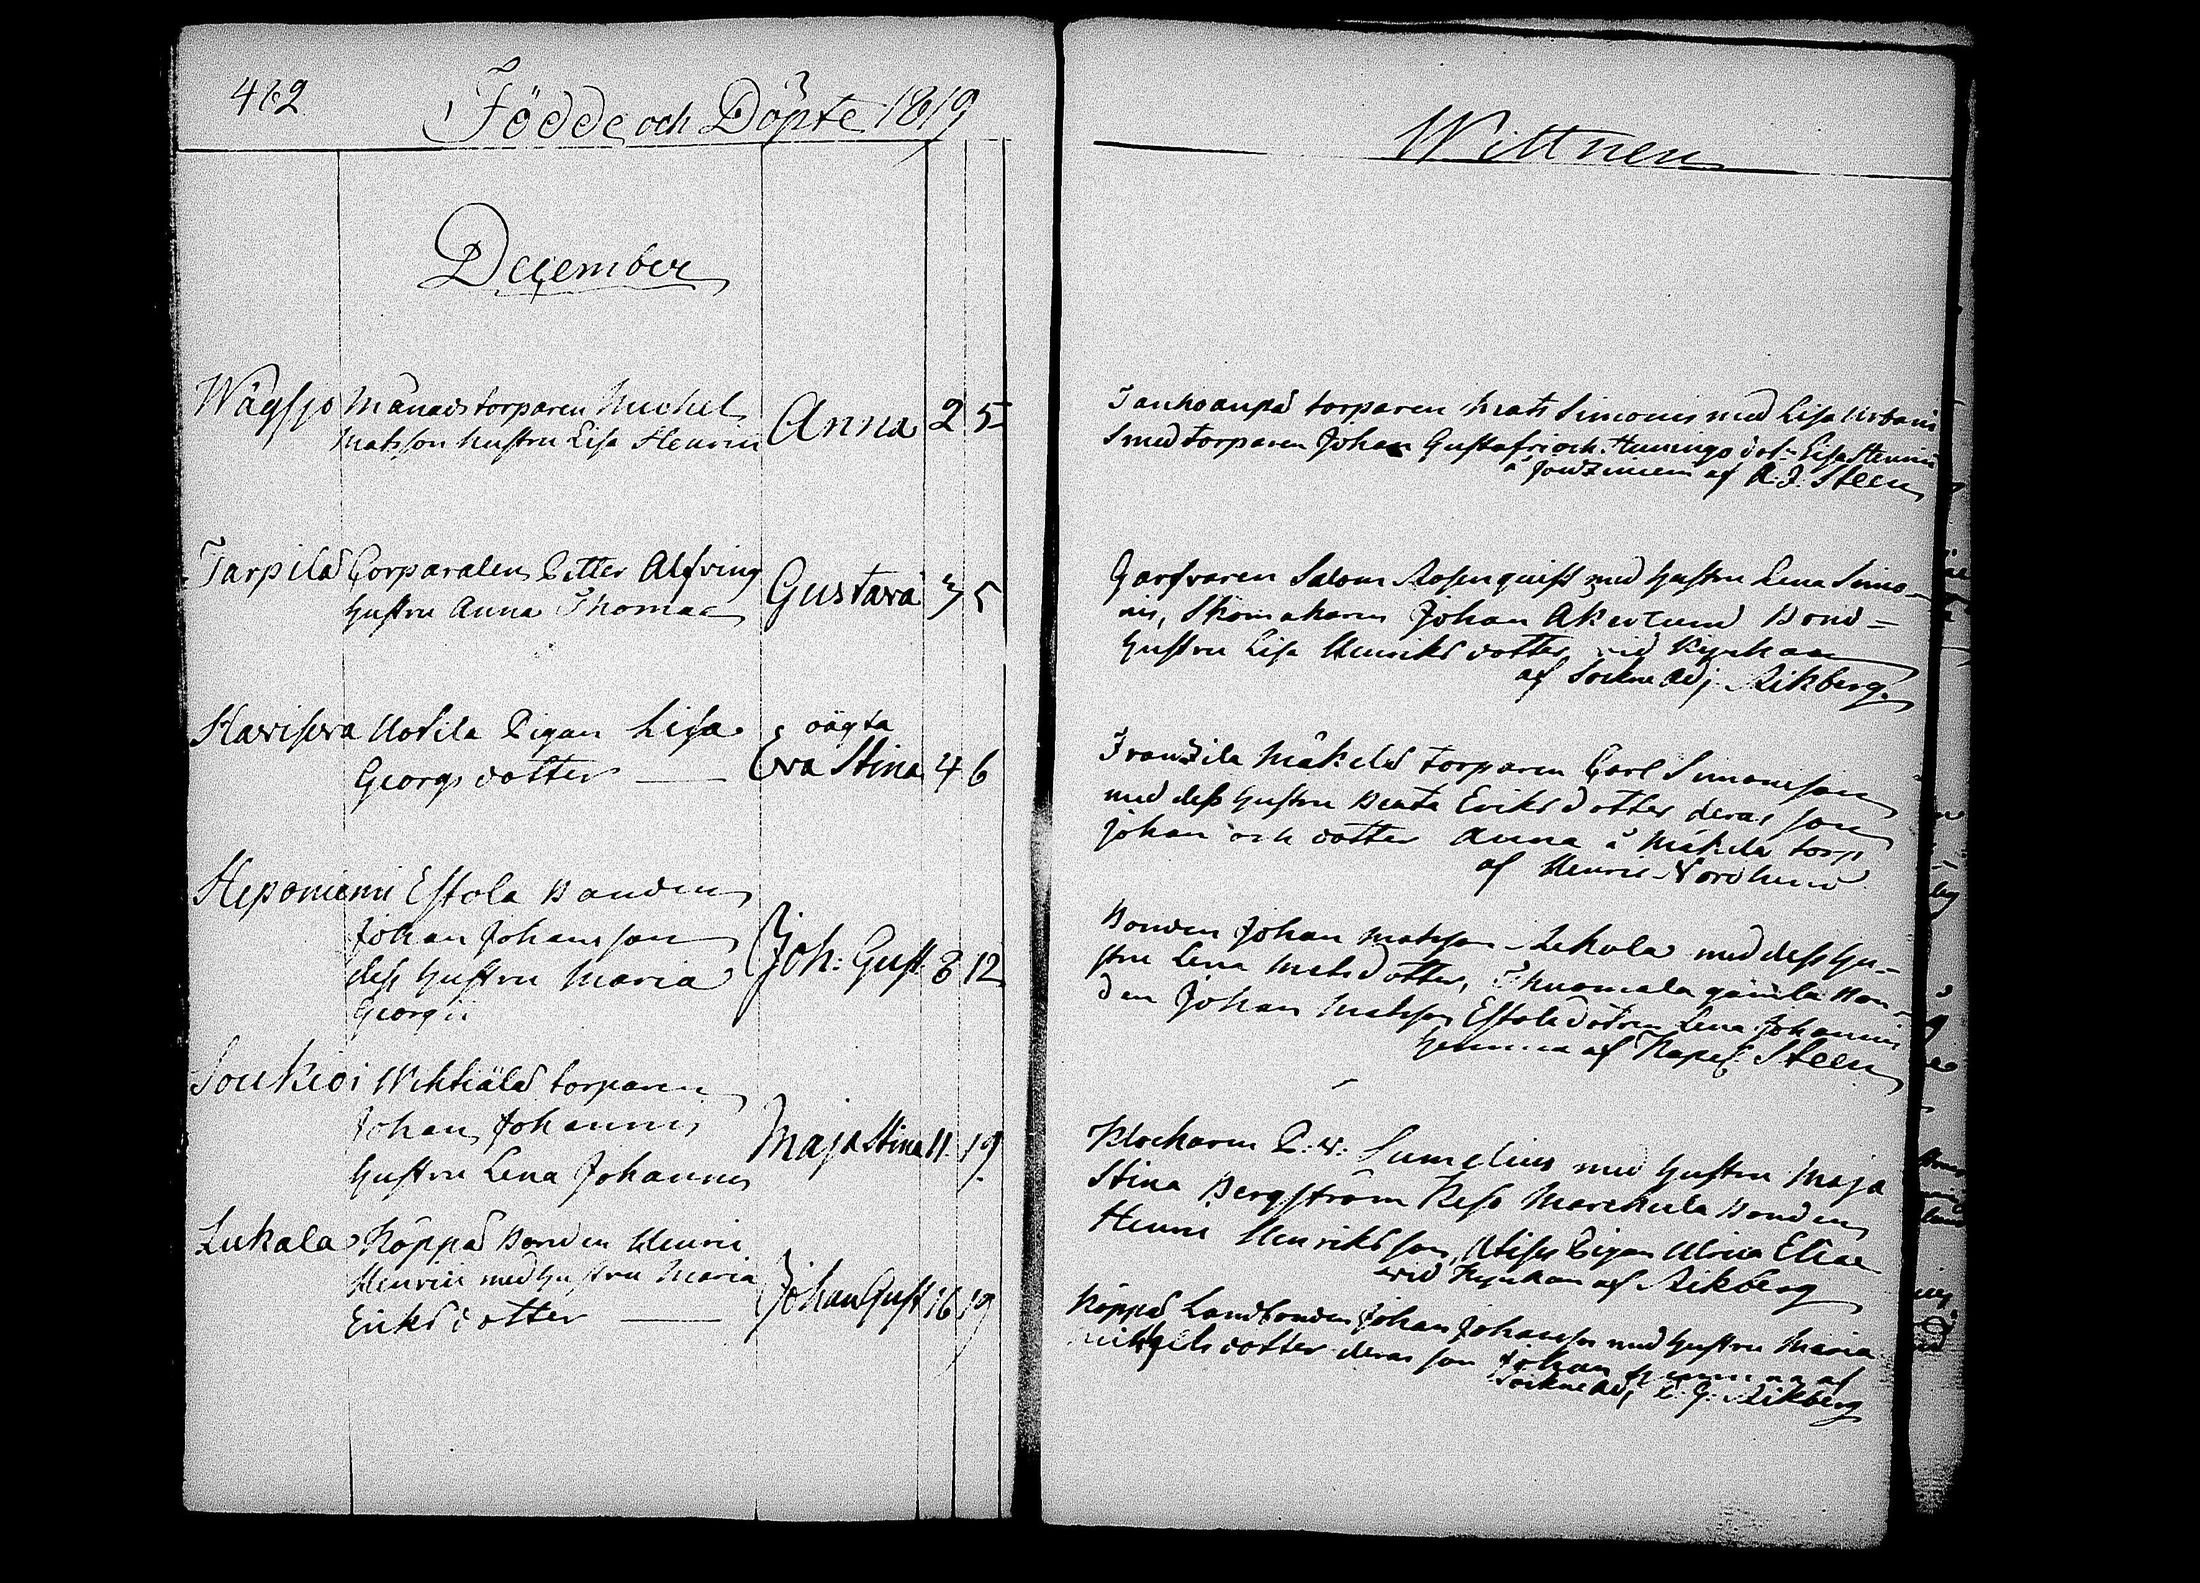 412
Födde och Döpte 1819
December
Wågsjö Månads torparen Michel
Matsson hustru Lisa Henrici
Anna 2 5
Tarpila Corparalen Petter Alfving
hustru Anna Thomae
Gustava 3 5
Karisura Uotila Pigan Lisa
Georgs dotter
oägta
Eva Stina 4 6
Heponiemi Eskola Bonden
Johan Johansson
dess hustru Maria
Georgii
Joh: Gust 8 12
Soukioi Wihtiälä torparen
Johan Johannis
hustru Lena Johannis
Maja Stina 11 19
Lukala Köppä Bonden Henric
Henrici med hustru Maria
Eriks dotter
Johan Gust 16 19
Wittnen
torparen Mats Simonis med Lisa Urbani
Smed torparen Johan Gustafsi och Hemings dot. Lisa Henrici
af A. J. Steen
Garfvaren Salom Rosenquist med hustru Lena Simo-
nis, Skomakaren Johan Åkerlund Bond=
hustru Lisa Henriks dotter, vid Kyrkan
af Sockne Adj. Rikberg
Frantsila Mäkelä torparen Carl Simonsson
med dess hustru Beata Eriks dotter deras son
Johan och dotter Anna å Mäkelä torp
af Henric Nordlund
Bonden Johan Matsson Lekola med dess hu-
stru Lena Mats dotter, gamla Bon-
den Johan Matsson Eskola dotren Lena Johannis
hemma af Kapel: Steen
Klockaren P: W: Sumelius med hustru Maja
Stina Bergström Keso Marckula Bonden
Henric Henriksson, Pigan Ulrica Eliae
wid Kyrkan af Rikberg
Köppä Landbonden Johan Johansson med hustru Maria
Michels dotter deras son Johan hemma af
Sockne Adj. C. G. Rikberg